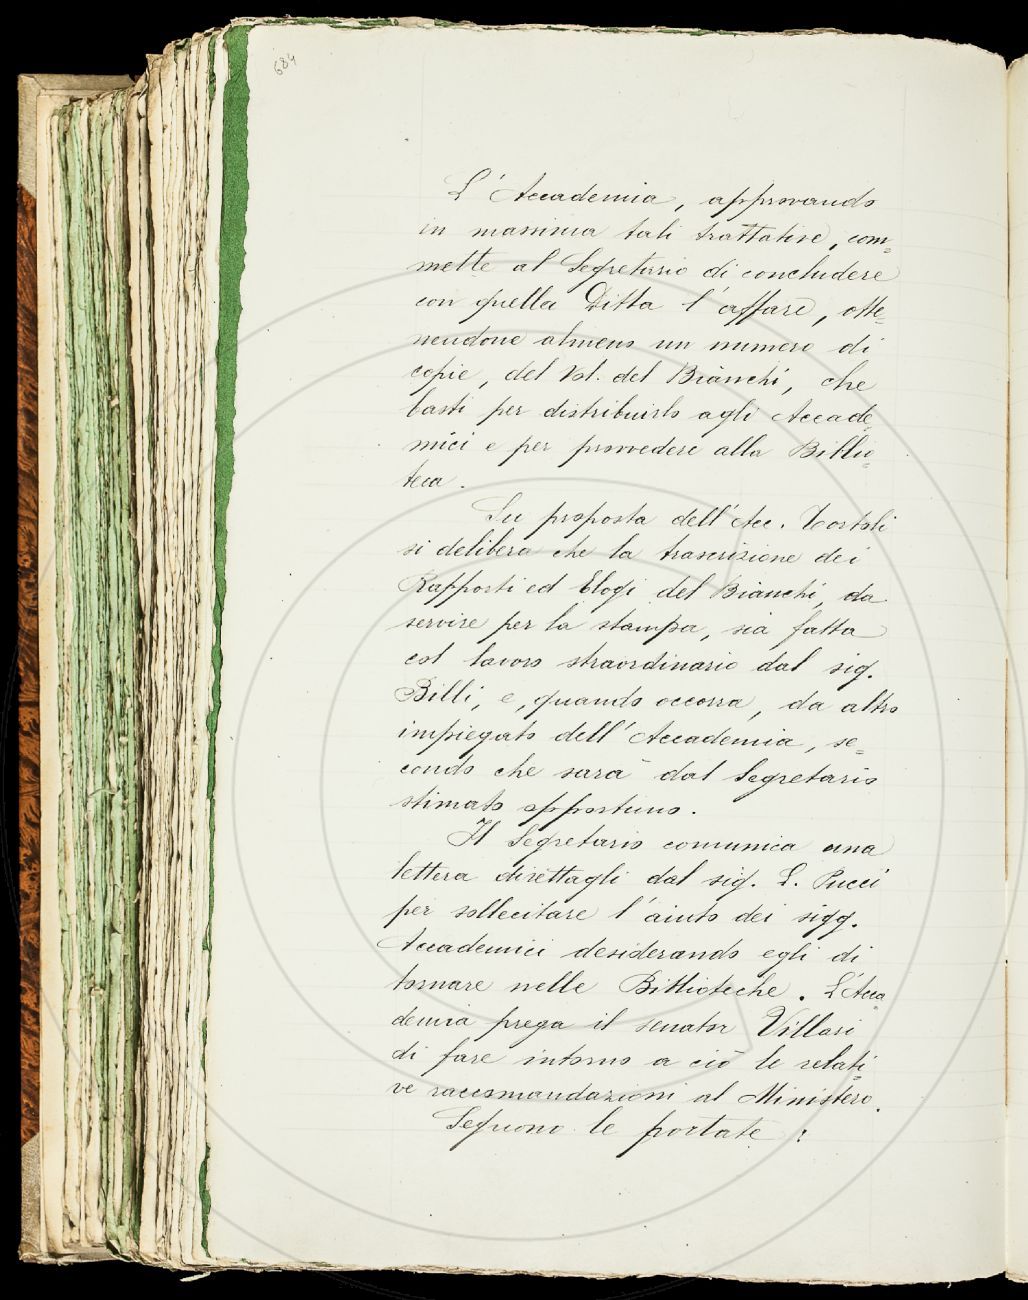 684
L'Accademia, approvando
in massima tali trattative, com=
mette al Segretario di concludere
con quella Ditta l'affare, otte=
nendone almeno un numero di
copie, del Vol. del Bianchi, che
basti per distribuirlo agli Accade=
mici e per provvedere alla Biblio=
teca.
Su proposta dell'Acc. Tortoli
si delibera che la trascrizione dei
Rapporti ed Elogi del Bianchi, da
servire per la stampa, sia fatta
col lavoro straordinario dal sig.
Billi, e, quando occorra, da altro
impiegato dell'Accademia, se=
condo che sarà dal Segretario
stimato opportuno.
Il Segretario comunica una
lettera direttagli dal sig. L. Pucci
per sollecitare l'aiuto dei sigg.
Accademici desiderando egli di
tornare nelle Biblioteche. L'Acca=
demia prega il senator Villari
di fare intorno a ciò le relati=
ve raccomandazioni al Ministero.
Seguono le portate: